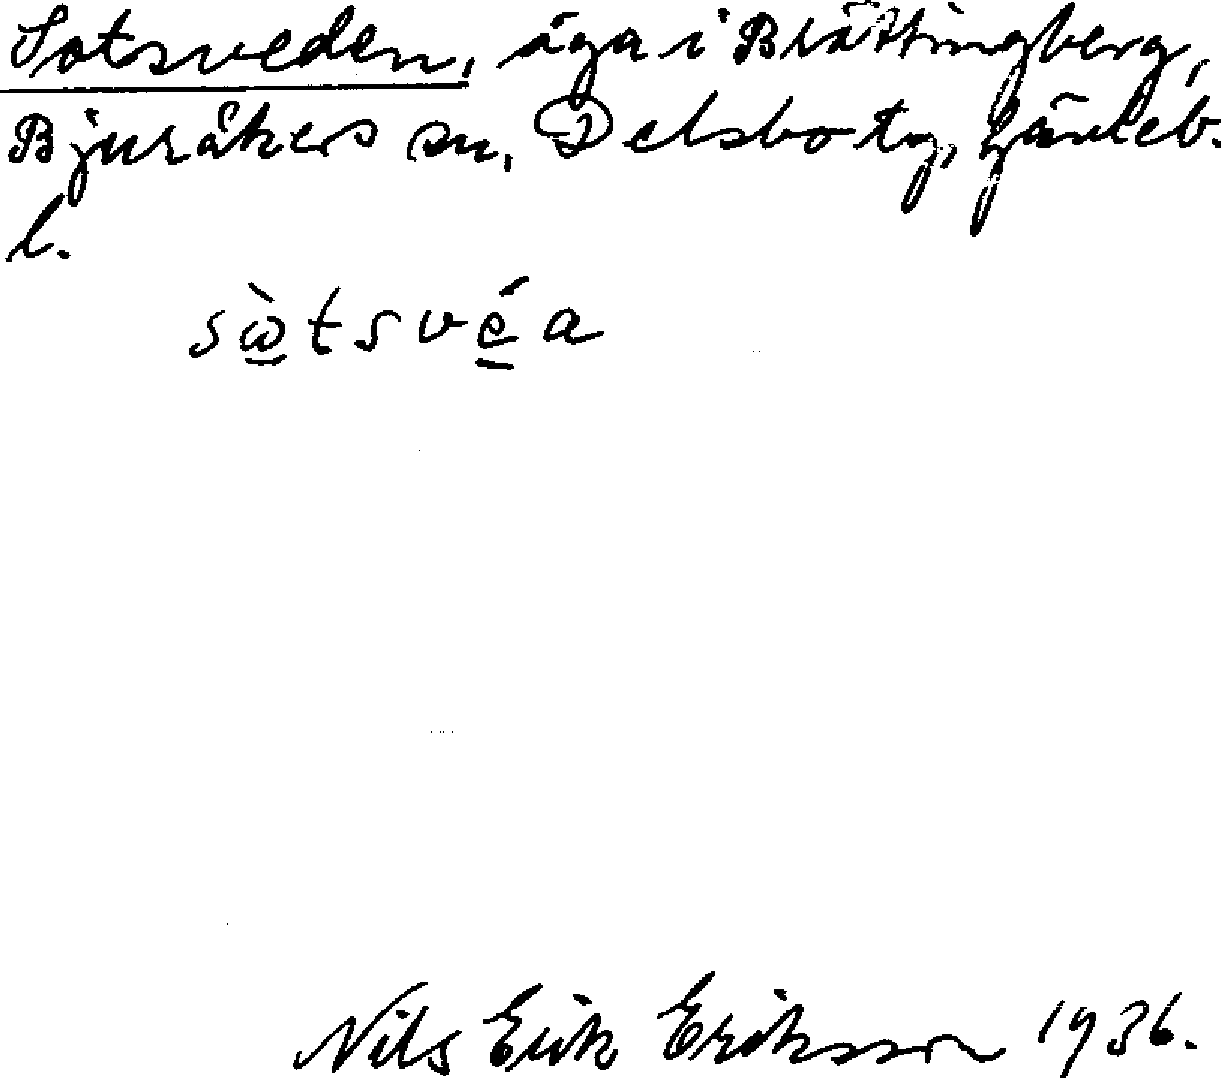 Sotsveden, äga i Brättingberg,
Bjuråkers sn, Delsbo tg, Gävleb.
l.
sὼ̱tsvé̱a
Nils Erik Eriksson 1936.